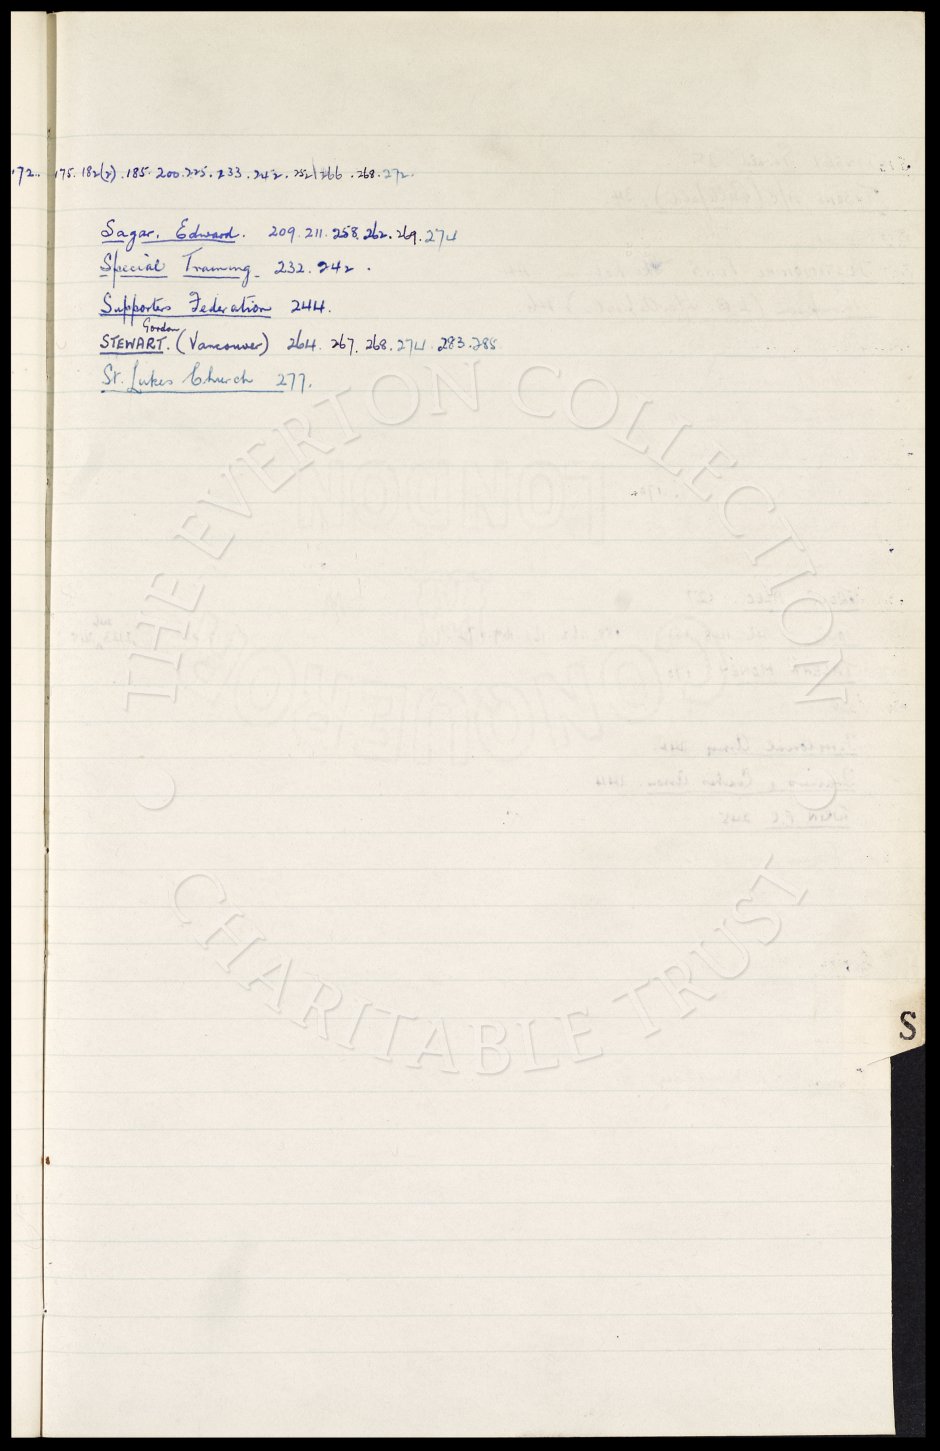 172. 175. 182(2). 185. 200. 225. 233. 242. 252. 266. 268. 272.
Sagar, Edward. 209. 211. 258. 262. 269. 274
Special Training. 232. 242.
Supporters Federation 244.
Gordon
STEWART. (Vancouver) 264. 267. 268. 274. 283. 288
St. Lukes Church 277.
THE EVERTON COLLECTION
CHARITABLE TRUST
S